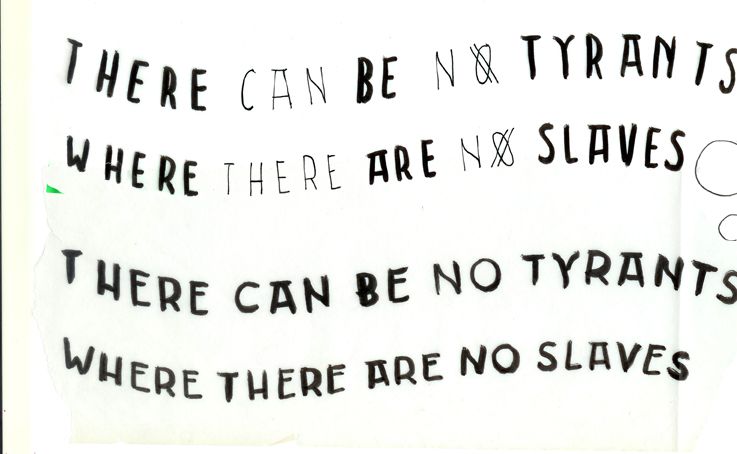 THERE CAN BE NO TYRANTS
WHERE THERE ARE NO SLAVES
THERE CAN BE NO TYRANTS
WHERE THERE ARE NO SLAVES